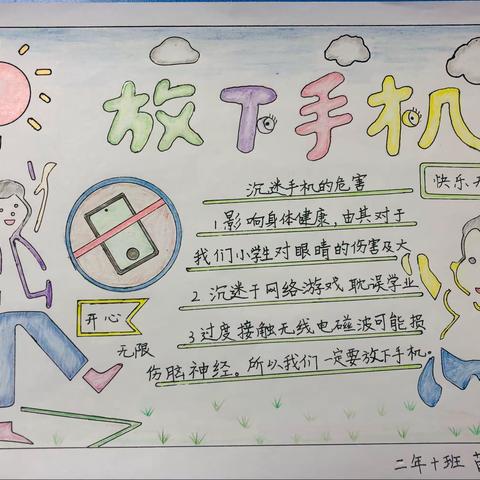 放下手机
沉迷手机的危害
快乐
1.影响身体健康，由其对于
我们小学生对眼睛的伤害及大
2.沉迷于网络游戏耽误学业
3过度接触无线电磁波可能损
伤脑神经。所以我们一定要放下手机。
开心
无限
二年十班